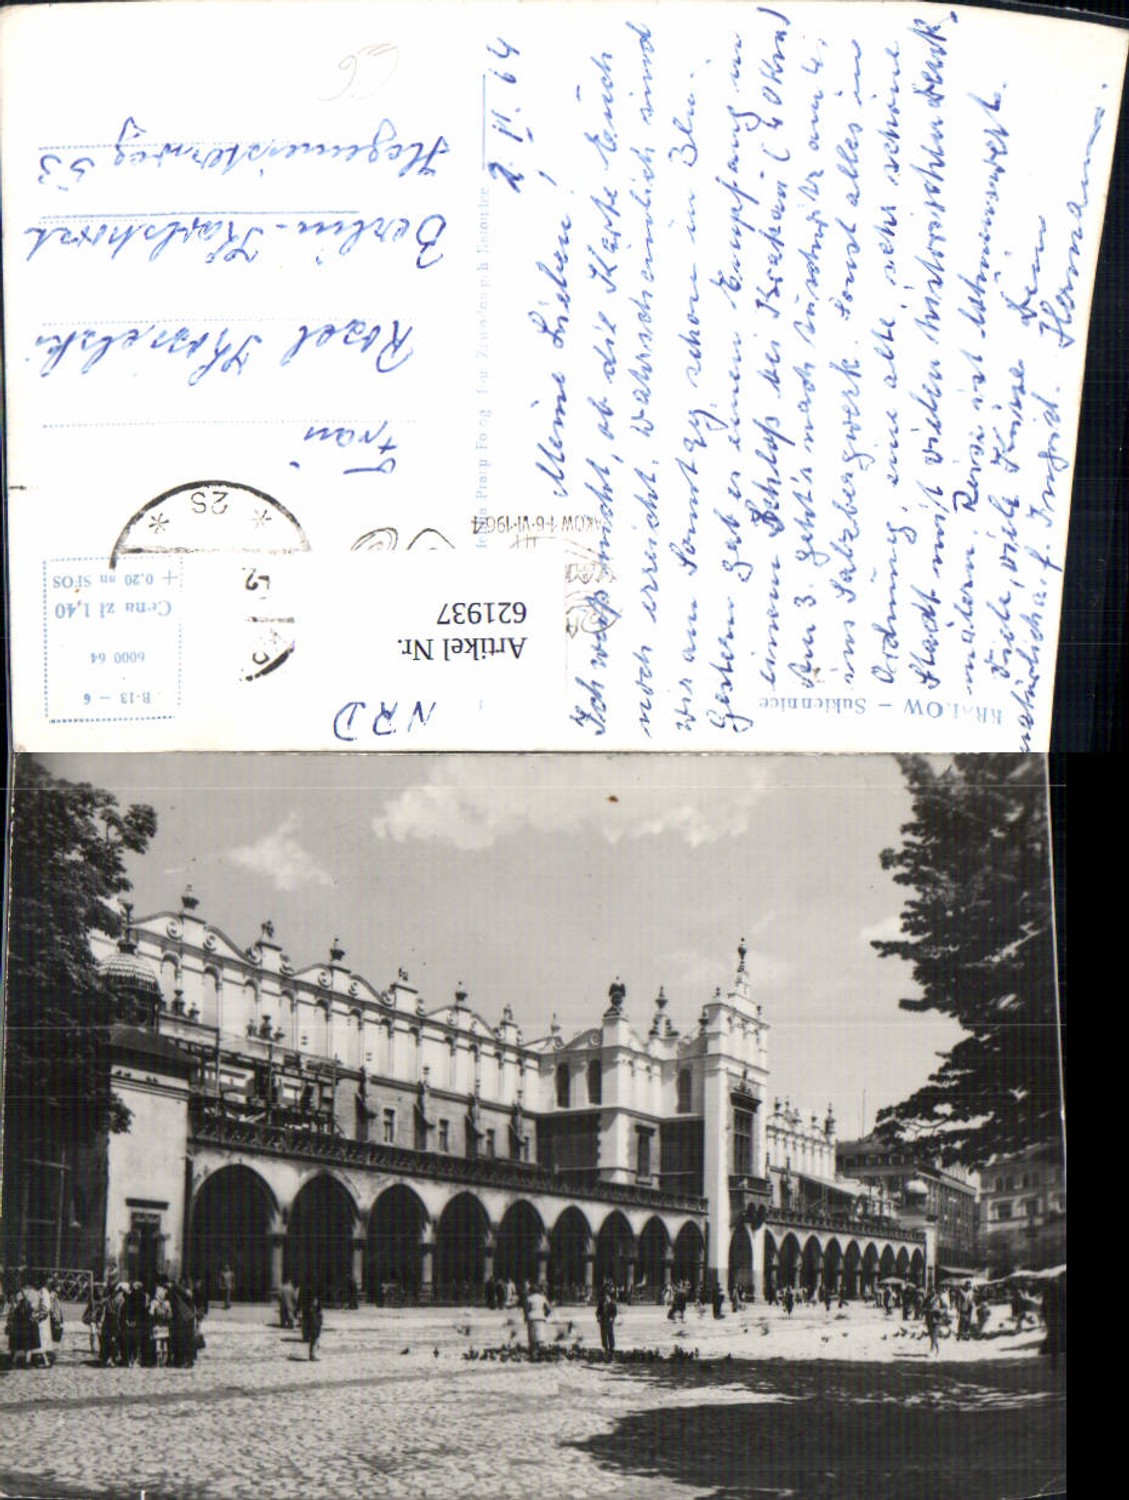 2. VI. 64
Meine Lieben,
Ich weiß nicht, ob die Karte Euch
noch erreicht. Wahrscheinlich sind
wir am Sonntag schon in Bln.
Gestern gab es einen Empfang in
einem Schloß bei Krakau (40 km)
Am 3. geht's nach Auschwitz am 4.
ins Salzbergwerk. Sonst alles in
Ordnung, eine alte sehr schöne
Stadt mit vielen historischen Denk-
mälern. Reise ist lohnenswert.
Viele, viele Küsse Dein
natürlich a. f. Ingrid. Hermann.
Frau
Rosel
Berlin-Karlshorst
Hegemeisterweg 33
NRD
KRAKOW – Sukiennice
B-13 – 6
6000 64
Cena zł 1,40
+ 0,20 na SFOS
Artikel Nr.
621937
KOW 1-6-VI-1964
2S